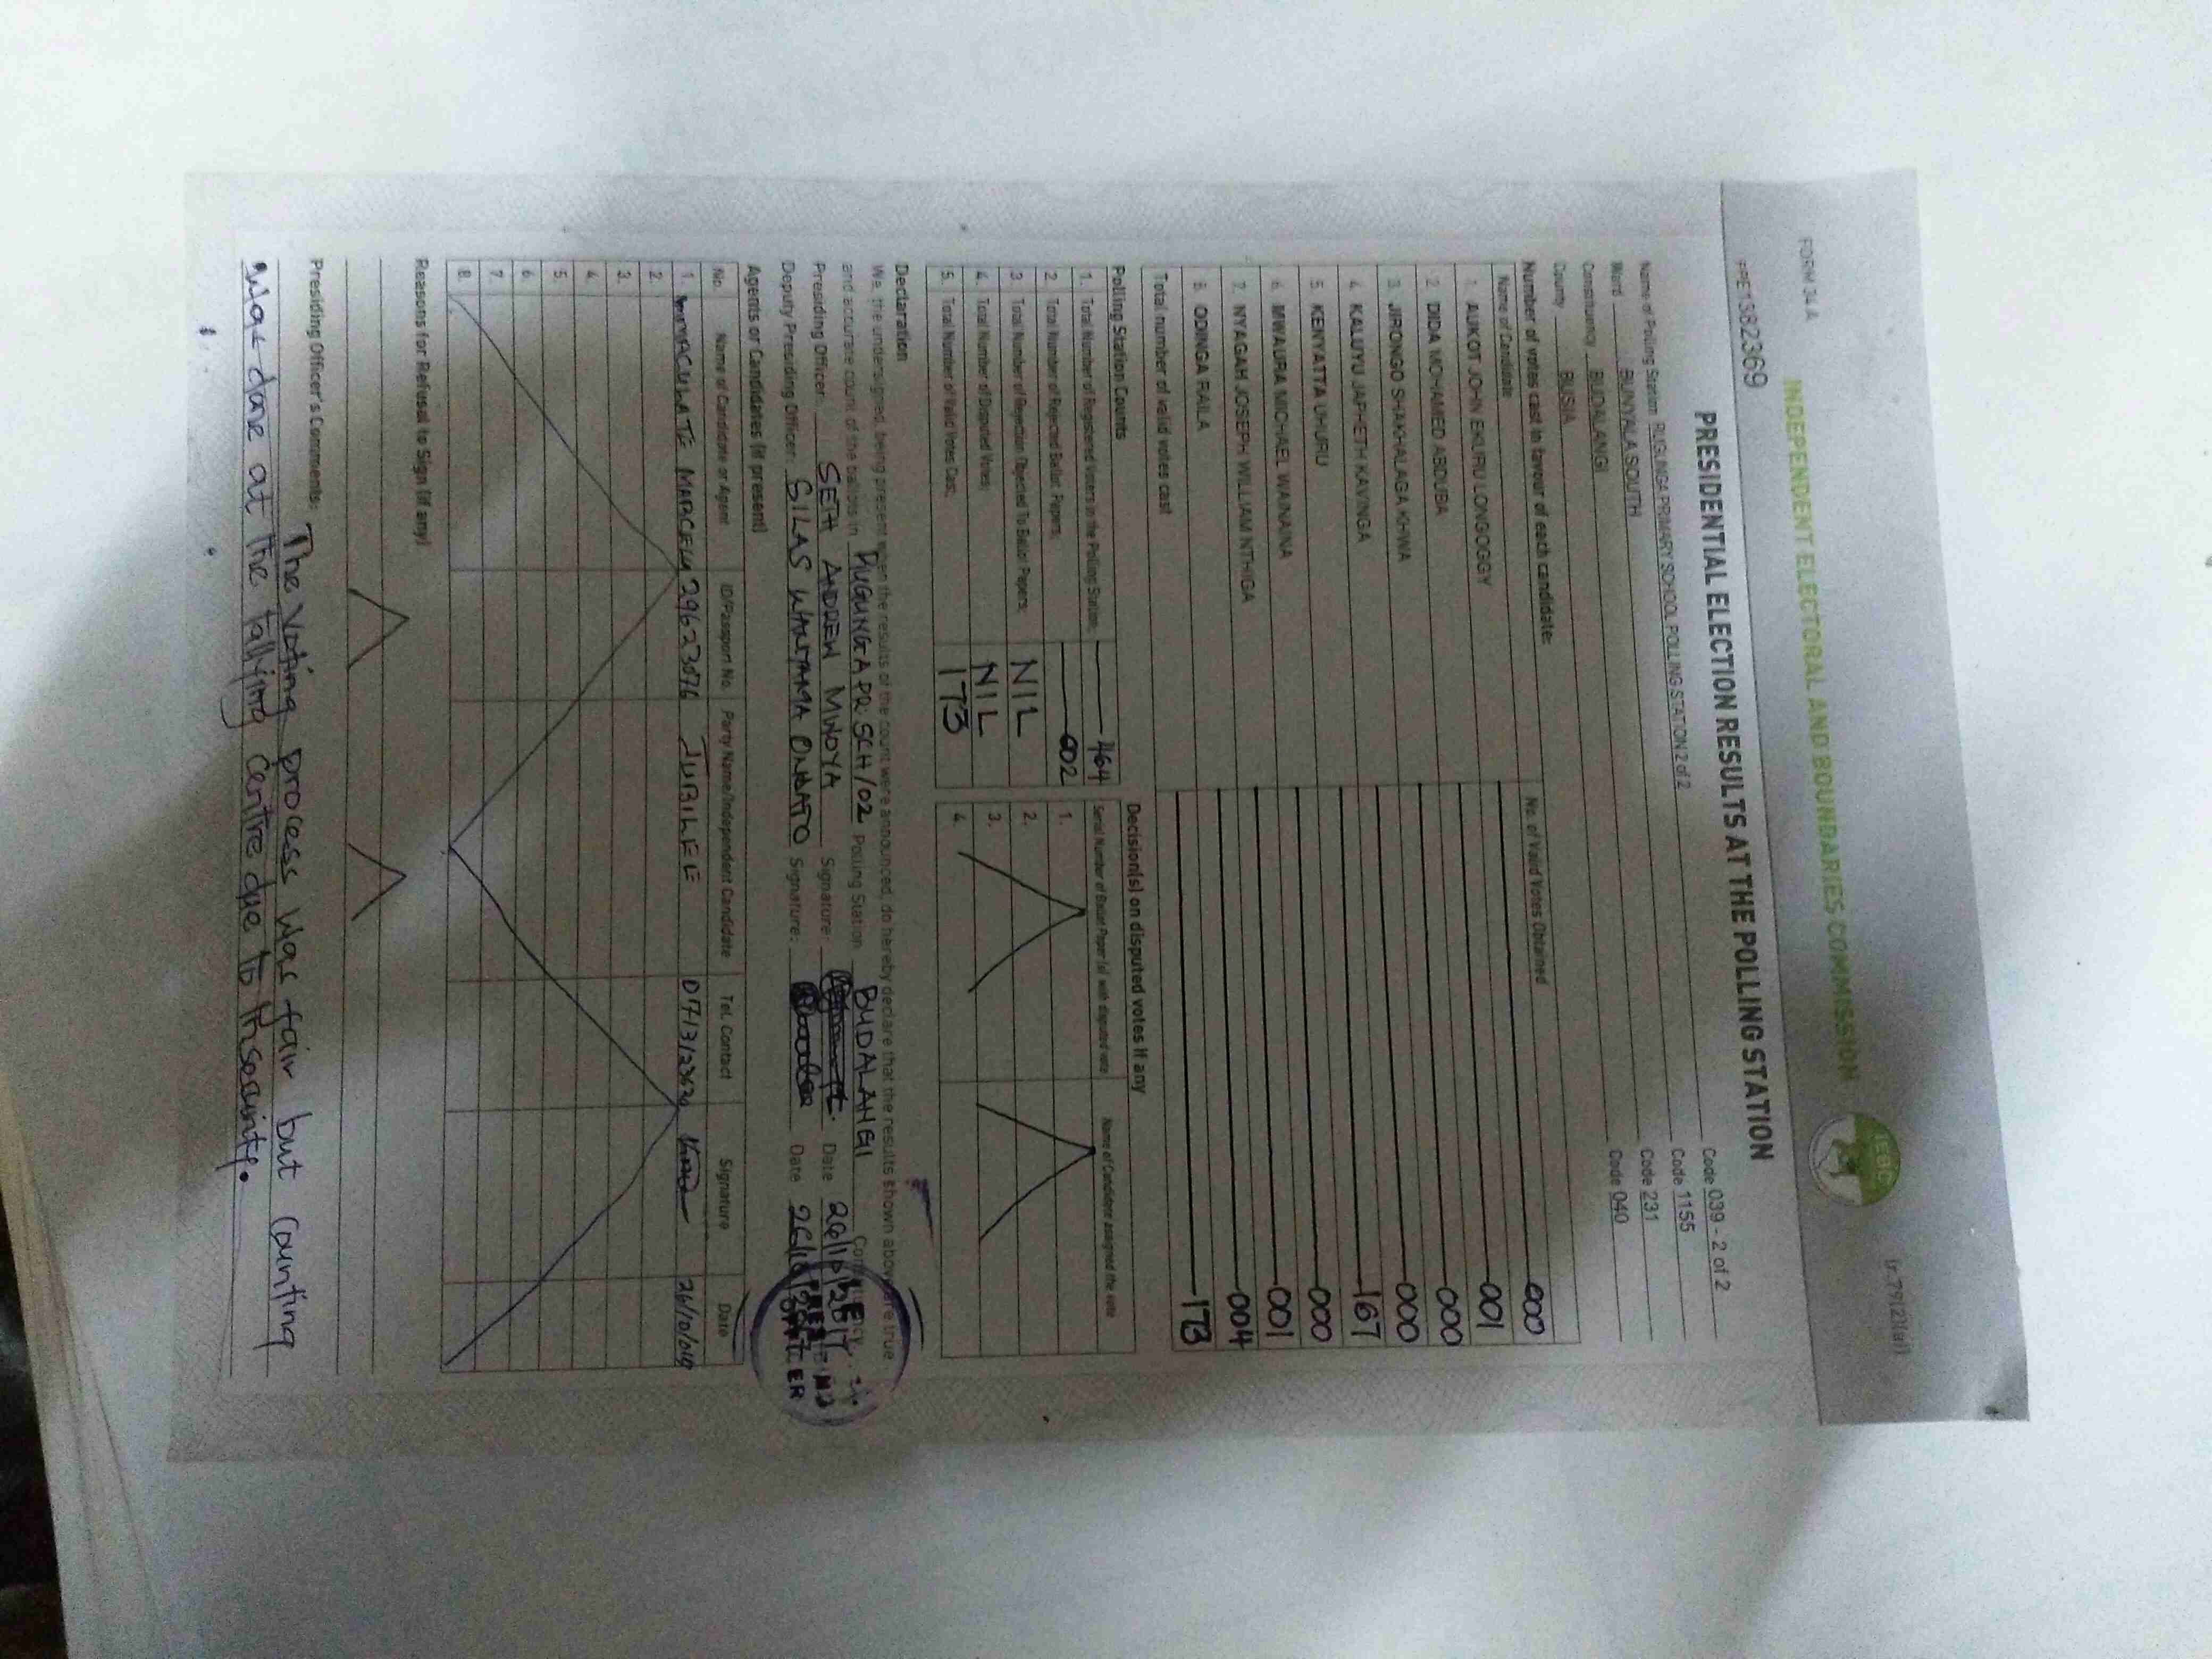 FORM 34A
(r.79(2)(a))
INDEPENDENT ELECTORAL AND BOUNDARIES COMMISSION
IEBC
PRE1382369
PRESIDENTIAL ELECTION RESULTS AT THE POLLING STATION
Name of Polling Station RUGUNGA PRIMARY SCHOOL POLLING STATION 2 of 2 Code 039 - 2 of 2
Ward BUNYALA SOUTH Code 1155
Constituency BUDALANGI Code 231
County BUSIA Code 040
Number of votes cast in favour of each candidate:
Name of Candidate No. of Valid Votes Obtained
1. AUKOT JOHN EKURU LONGOGGY 000
2. DIDA MOHAMED ABDUBA 001
3. JIRONGO SHAKHALAGA KHWA 000
4. KALUYU JAPHETH KAVINGA 000
5. KENYATTA UHURU 167
6. MWAURA MICHAEL WAINAINA 000
7. NYAGAH JOSEPH WILLIAM NTHIGA 001
8. ODINGA RAILA 004
Total number of valid votes cast 173
Polling Station Counts Decision(s) on disputed votes if any
1. Total Number of Registered Voters in the Polling Station; 464
2. Total Number of Rejected Ballot Papers; 002
3. Total Number of Rejection Objected To Ballot Papers; NIL
4. Total Number of Disputed Votes; NIL
5. Total Number of Valid Votes Cast; 173
Serial Number of Ballot Paper (s) with disputed vote Name of Candidate assigned the vote
1.
2.
3.
4.
Declaration
We, the undersigned, being present when the results of the count were announced, do hereby declare that the results shown above are true
and accurate count of the ballots in RUGUNGA PR. SCH/02 Polling Station BUDALANGI
Presiding Officer: SETH ANDREW MWOYA Signature: Date 26/10/2017
Deputy Presiding Officer: SILAS WANYAMA ONDATO Signature: Date 26/10/2017
Agents or Candidates (if present)
No. Name of Candidate or Agent ID/Passport No. Party Name/Independent Candidate Tel. Contact Signature Date
1. IMMACULATE 29623076 JUBILEE
2.
3.
4.
5.
6.
7.
8.
Reasons for Refusal to Sign (if any)
Presiding Officer's Comments: The Voting process was fair but counting
was done at the tallying centre due to insecurity.